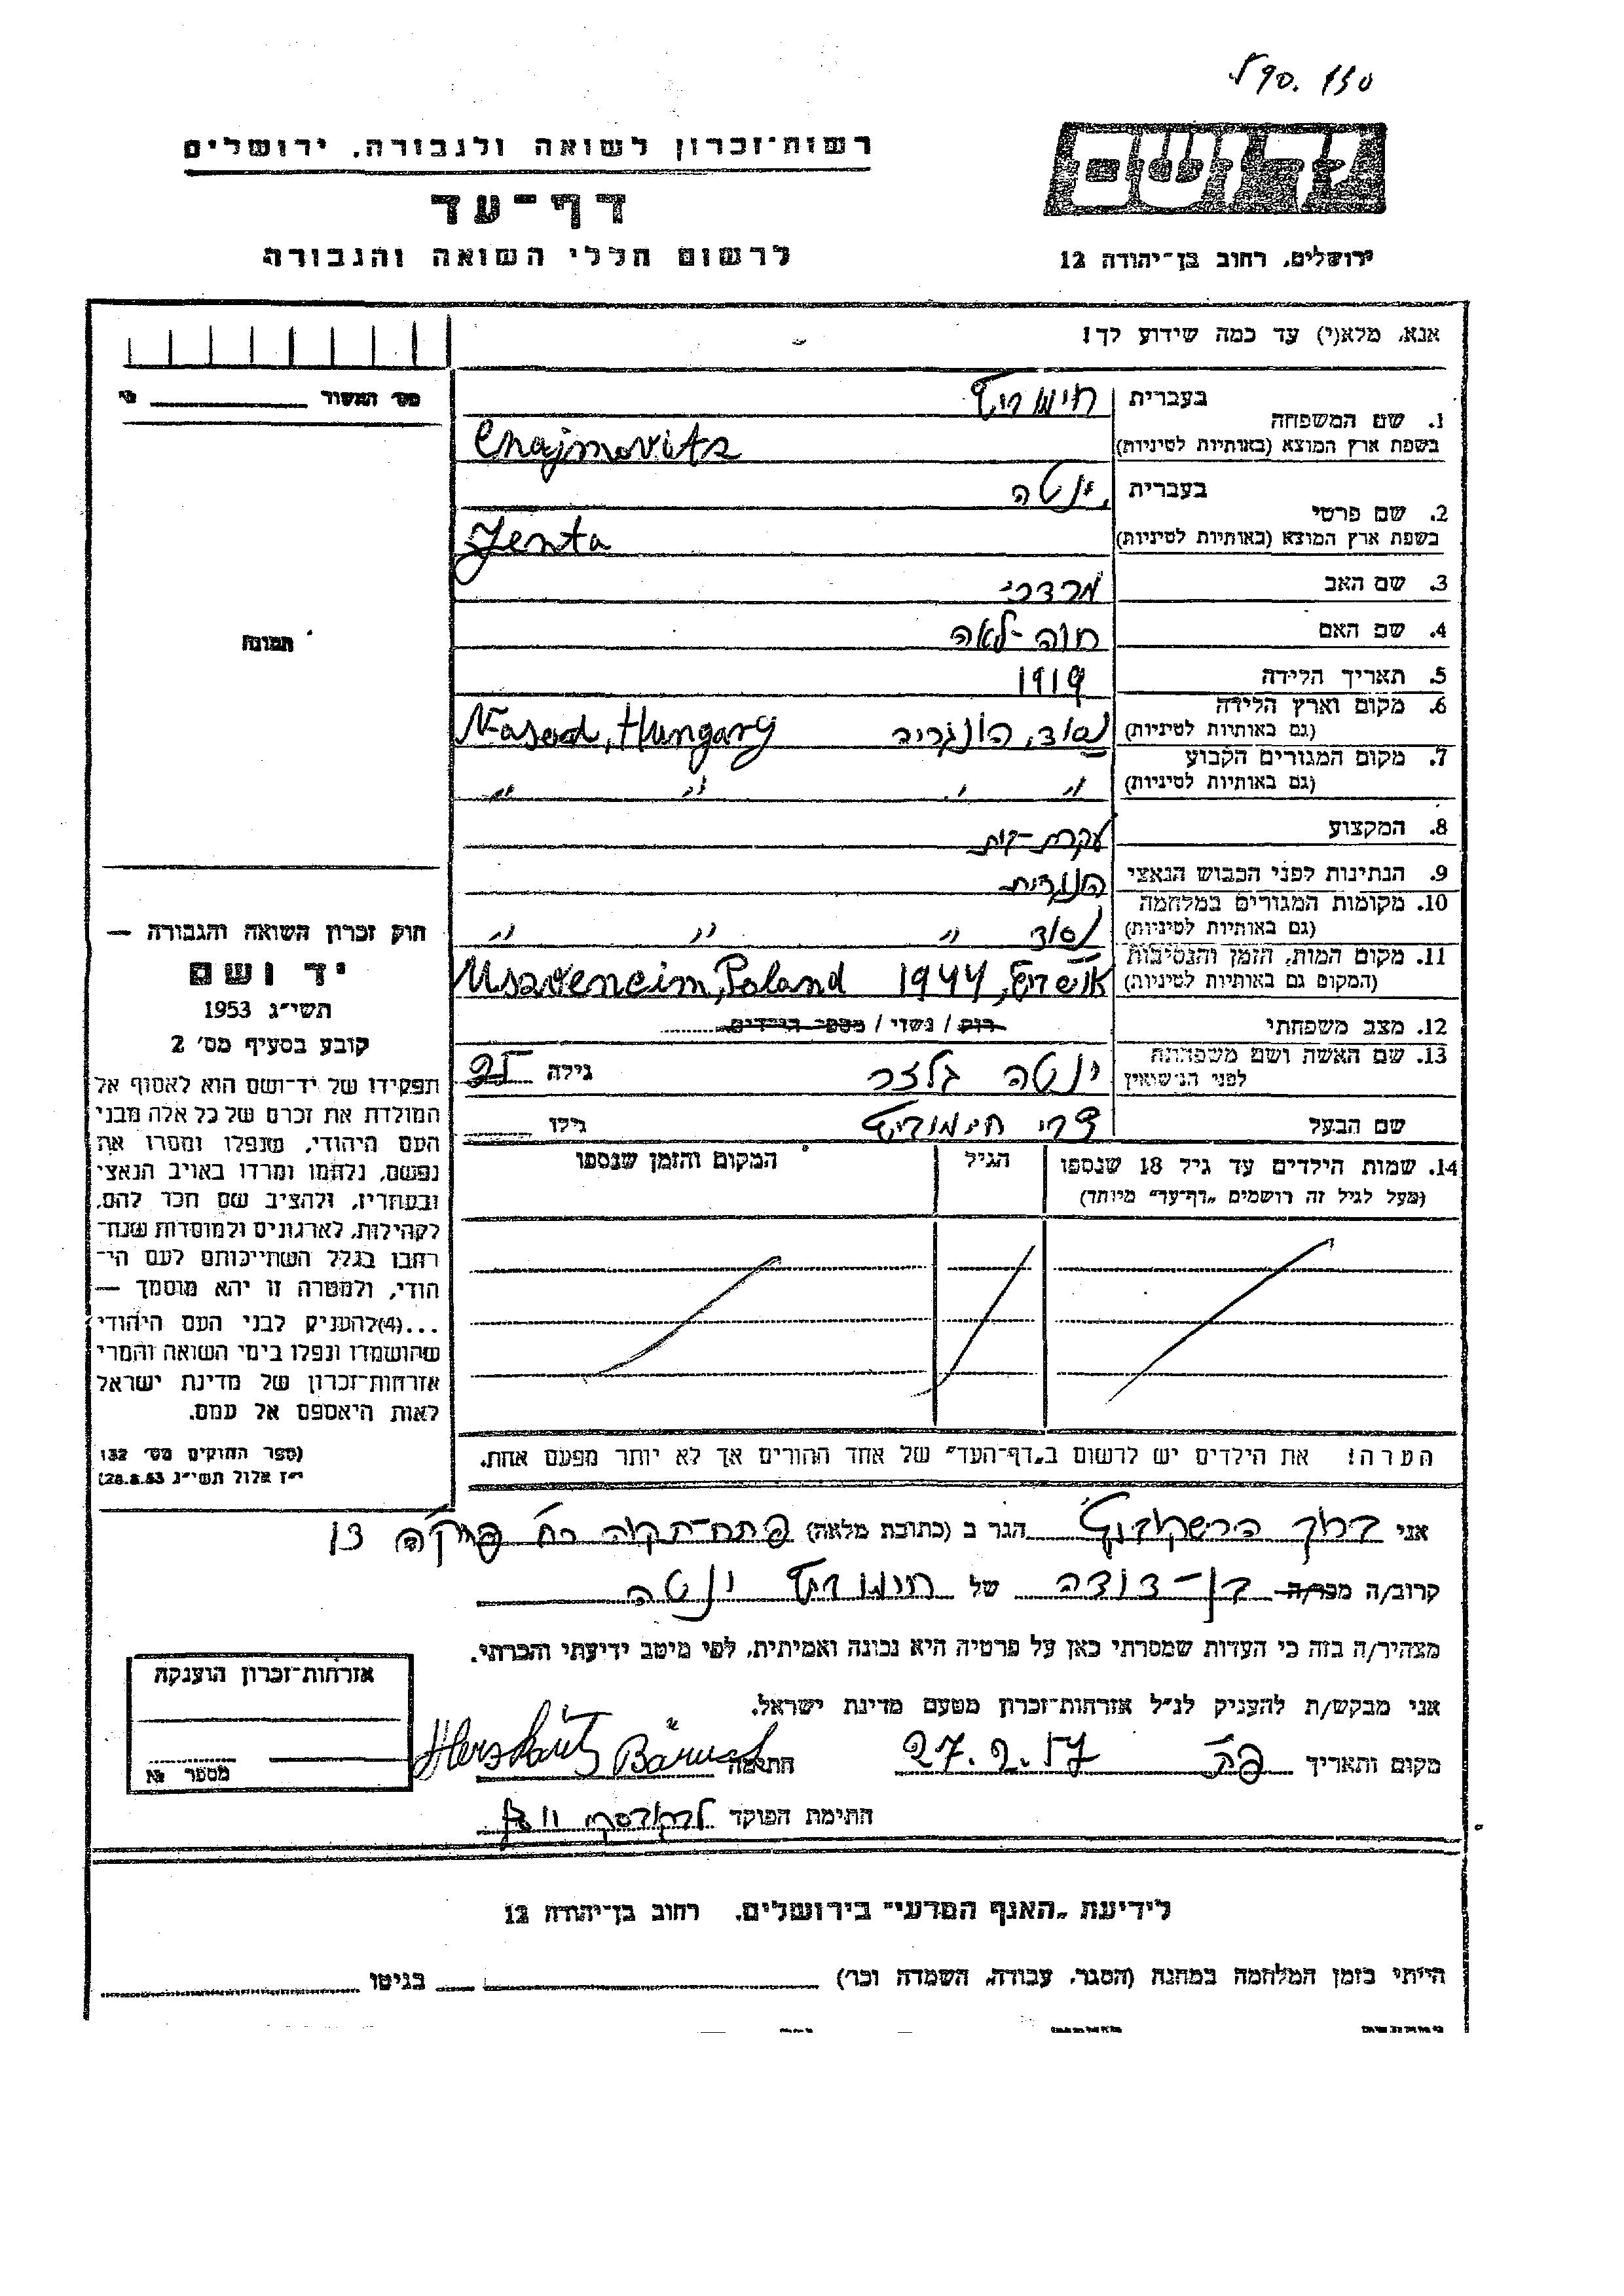 רשות־זכרון לשואה ולגבורה, ירושלים
דף־עד
לרשום חללי השואה והגבורה
יד ושם
ירושלים, רחוב בן־יהודה 12
אנא, מלא(י) עד כמה שידוע לך!
1. שם המשפחה
בעברית חימוביץ
בשפת ארץ המוצא (באותיות לטיניות) Chajmovits
2. שם פרטי
בעברית ינטה
בשפת ארץ המוצא (באותיות לטיניות) Jenta
3. שם האב מרדכי
4. שם האם חוה-לאה
5. תאריך הלידה 1919
6. מקום וארץ הלידה
(גם באותיות לטיניות) נסוד, הונגריה Nasod, Hungary
7. מקום המגורים הקבוע
(גם באותיות לטיניות) " " " "
8. המקצוע עקרת-בית
9. הנתינות לפני הכבוש הנאצי הונגרית
10. מקומות המגורים במלחמה
(גם באותיות לטיניות) נסוד " " "
11. מקום המות, הזמן והנסיבות
(המקום גם באותיות לטיניות) אושויץ, 1944 Usavencim, Poland
12. מצב משפחתי רוק / נשוי / מספר הילדים
13. שם האשה ושם משפחתה
לפני הנישואין ינטה גלזר גילה 25
שם הבעל צבי חימוביץ גילו
14. שמות הילדים עד גיל 18 שנספו
(מעל לגיל זה רושמים „דף־עד" מיוחד)
הגיל
המקום והזמן שנספו
הערה! את הילדים יש לרשום ב„דף־העד" של אחד ההורים אך לא יותר מפעם אחת.
מס' המשור
תמונה
חוק זכרון השואה והגבורה —
יד ושם
תשי״ג 1953
קובע בסעיף מס׳ 2
תפקידו של יד־ושם הוא לאסוף אל
המולדת את זכרם של כל אלה מבני
העם היהודי, שנפלו ומסרו את
נפשם, נלחמו ומרדו באויב הנאצי
ובעוזריו, ולהציב שם וזכר להם,
לקהילות, לארגונים ולמוסדות שנח־
רחבו בגלל השתייכותם לעם הי־
הודי, ולמטרה זו יהא מוסמך —
...(4)להעניק לבני העם היהודי
שהושמדו ונפלו בימי השואה והמרי
אזרחות־זכרון של מדינת ישראל
לאות היאספם אל עמם.
(ספר החוקים מס׳ 132
י״ז אלול תשי״ג 28.8.53)
אני ברוך הרשקוביץ הגר ב (כתובת מלאה) פתח-תקוה רח' 13
קרוב/ה מכר/ה בן-דודה של חימוביץ ינטה
מצהיר/ה בזה כי העדות שמסרתי כאן על פרטיה היא נכונה ואמיתית, לפי מיטב ידיעתי והכרתי.
אני מבקש/ת להעניק לנ״ל אזרחות־זכרון מטעם מדינת ישראל.
מקום ותאריך פ"ת 27.2.57 חתימה Herskovits Baruch
חתימת הפוקד
אזרחות־זכרון הוענקה
מספר №
לידיעת „האגף המדעי" בירושלים, רחוב בן־יהודה 12
הייתי בזמן המלחמה במחנה (הסגר, עבודה, השמדה וכו׳) בגיטו